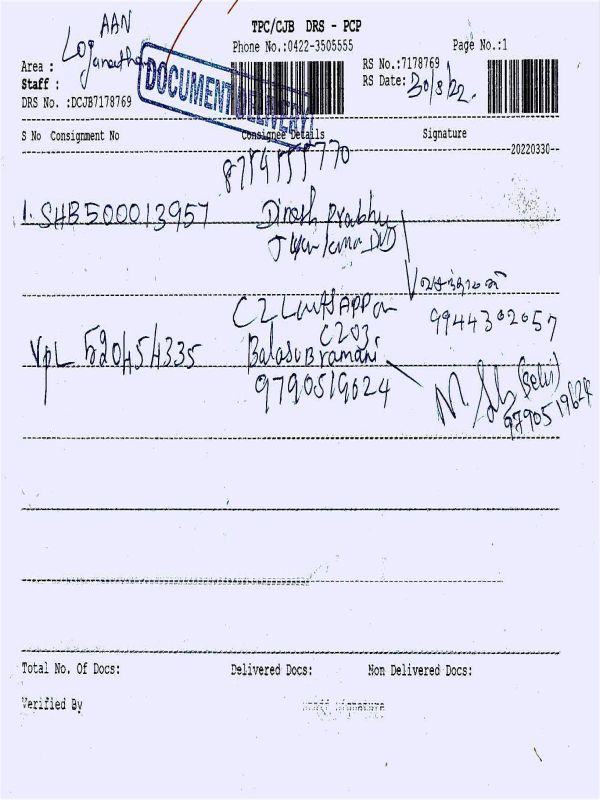 AAN
TPC/CJB DRS - PCP
Loganathan
Phone No.:0422-3505555
Page No.:1
Area :
RS No.:7178769
Staff :
RS Date: 30/8/22.
DRS No. :DCJB7178769
DOCUMENT DELIVERY
S No Consignment No
Consignee Details
Signature
20220330
1. SHB500013957
Dinesh Prabhu
வசந்தாமணி
9944302057
C203
VPL 520454335
Balasubramani
9790519624
(Selvi)
9790519624
Total No. Of Docs:
Delivered Docs:
Non Delivered Docs:
Verified By
Staff Signature